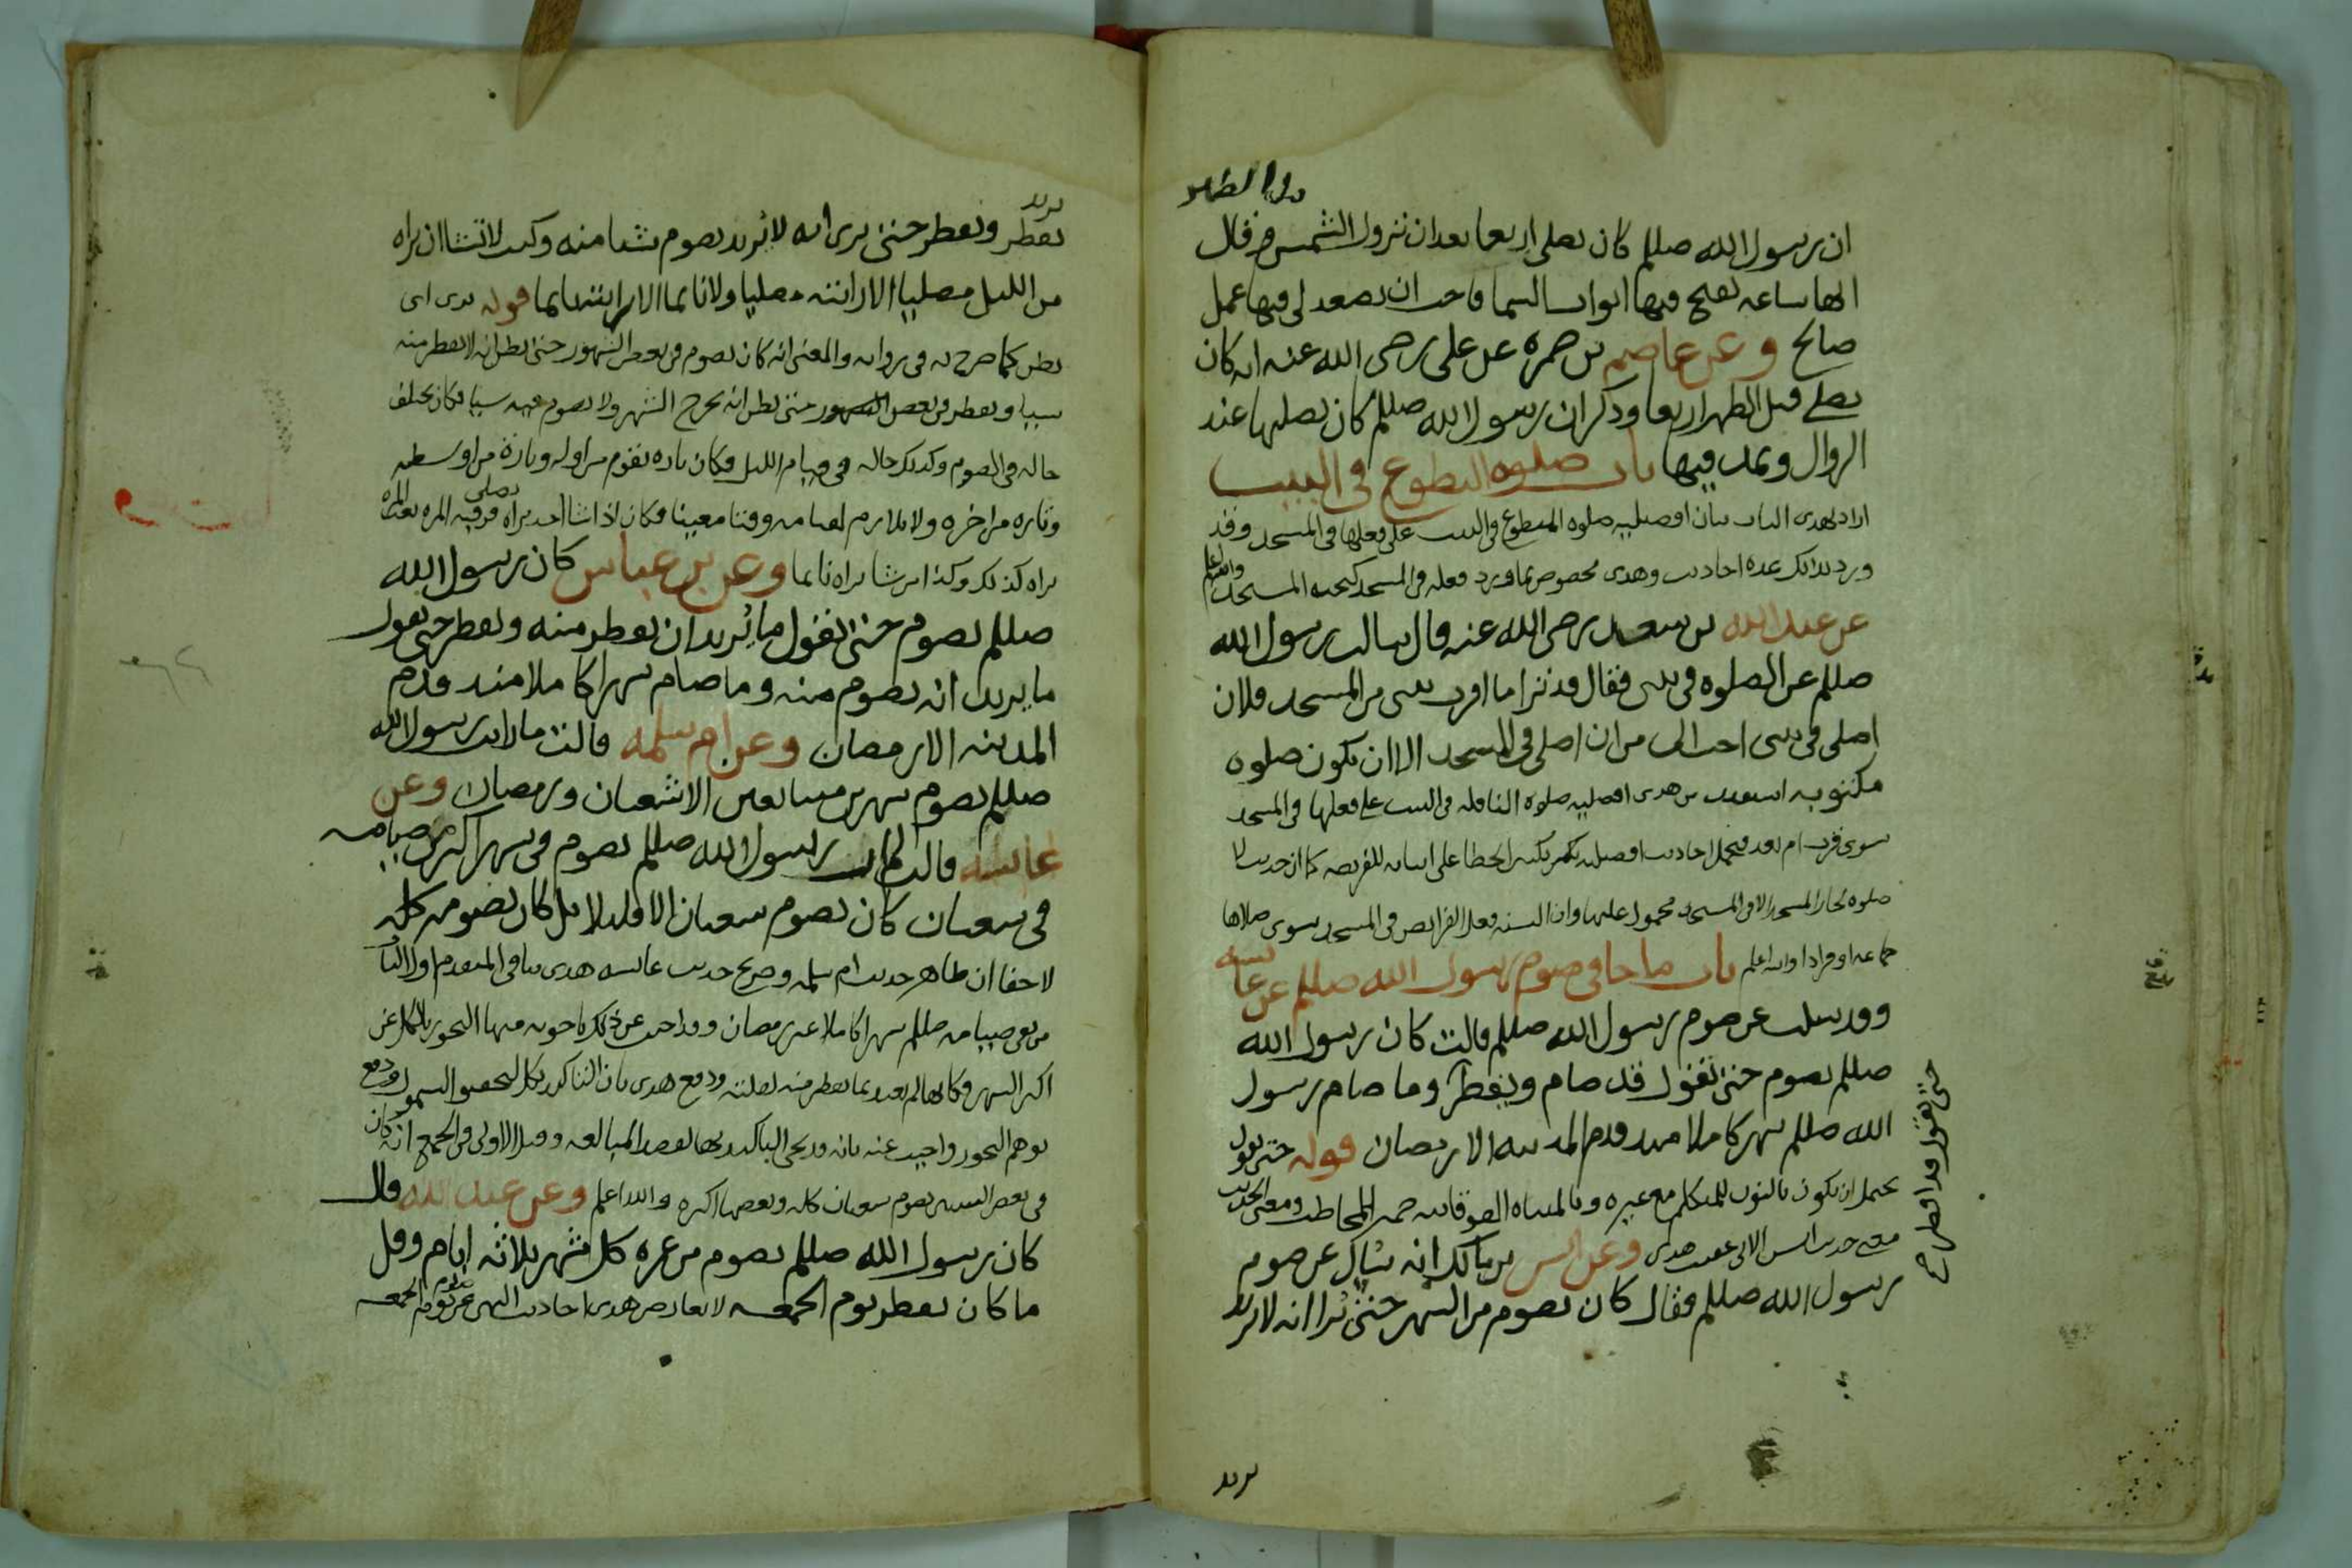 قبل الظهر
ان رسول الله صللم كان يصلي اربعا بعد ان تزول الشمس وقال
انها ساعه تفتح فيها ابواب السما فاحب ان يصعد لي فيها عمل
صالح وعن عاصم بن ضمره عن علي رضي الله عنه انه كان
يصلي قبل الظهر اربعا وذكر ان رسول الله صللم كان يصليها عند
الزوال ويمد فيها باب صلوه التطوع في البيت
اراد بهذي الباب بيان افضليه صلوه المتطوع في البيت علي فعلها في المسجد وقد
ورد بذلك عده احاديث وهذي مخصوص بما ورد فعله في المسجد كتحيه المسجد والله اعلم
عن عبد الله بن سعد رضي الله عنه قال سالت رسول الله
صللم عن الصلوه في بيتي فقال قد تري ما اقرب بيتي من المسجد فلان
اصلي في بيتي احب الي من ان اصلي في المسجد الا ان تكون صلوه
مكتوبه استفيد من هذي افضليه صلوه النافله في البيت علي فعلها في المسجد
سوي قرب ام بعد فتحمل احاديث افضليه تكثير الخطا علي اتيانه للفريضه كما ان حديث لا
صلوه لجار المسجد الا في المسجد محمول عليها وان السنه فعل الفرايض في المسجد سوي صلاها
جماعه او فرادا والله اعلم باب ما جا في صوم رسول الله صللم عن عايشه
وقد سيلت عن صوم رسول الله صللم قالت كان رسول الله
صللم يصوم حتى نقول قد صام ويفطر وما صام رسول
الله صللم شهرا كاملا منذ قدم المدينه الا رمضان قوله حتى نقول
يحتمل ان يكون بالنون للمتكلم مع غيره وبالمثناه الفوقانيه ضمير المخاطب ومعنى الحديث
معنى حديث انس الاتي عقب هذي وعن انس بن مالك انه سيل عن صوم
رسول الله صللم فقال كان يصوم من الشهر حتى نرا انه لا يريد
حتى نقول قد افطر صح
يريد
يفطر ويفطر حتى يرى انه لا يريد يصوم شيا منه وكنت لا تشا ان تراه
من الليل مصليا الا رايته مصليا ولا نايما الا رايته نايما قوله يرى اي
يظن كما صرح به في روايه والمعنى انه كان يصوم في بعض الشهور حتى يظن انه لا يفطر منه
شيا ويفطر في بعض الشهور حتى يظن انه يخرج الشهر ولا يصوم فيه شيا فكان يختلف
حاله في الصوم وكذلك حاله في قيام الليل فكان تاره يقوم من اوله وتارة من اوسطه
وتاره من اخره ولا يلازم لقيامه وقتا معينا فكان اذا شا احد يراه يصلي فرقبه المره بعد المره
يراه كذلك وكذا من شا يراه نايما وعن بن عباس كان رسول الله
صللم يصوم حتى نقول ما يريد ان يفطر منه ويفطر حتى نقول
ما يريد انه يصوم منه وما صام شهرا كاملا منذ قدم
المدينه الا رمضان وعن ام سلمه قالت ما رايت رسول الله
صللم يصوم شهرين متتابعين الا شعبان ورمضان وعن
عايشه قالت كان رسول الله صللم يصوم في شهر اكثر من صيامه
في شعبان كان يصوم شعبان الا قليلا بل كان يصومه كله
لا خفا ان ظاهر حديث ام سلمه وصريح حديث عايشه هذي ينافي المتقدم اولا
من نفي صيامه صللم شهرا كاملا غير رمضان وقد اجيب عن ذلك باجوبه منها التجوز بالكل عن
اكثر الشهر فكانها لم تعتد بما يفطر منه لقلته ودفع هذي بان التاكيد بكل لتحقيق الشمول ودفع
توهم التجوز واجيب عنه بانه قد يجي التاكيد بها لقصد المبالغه وقيل الاولى في الجمع انه كان
في بعض السنين يصوم شعبان كله وبعضها اكثره والله اعلم وعن عبد الله قال
كان رسول الله صللم يصوم من غره كل شهر ثلاثه ايام وقل
ما كان يفطر يوم الجمعه لا يعارض هذي احاديث النهي عن صوم يوم الجمعه